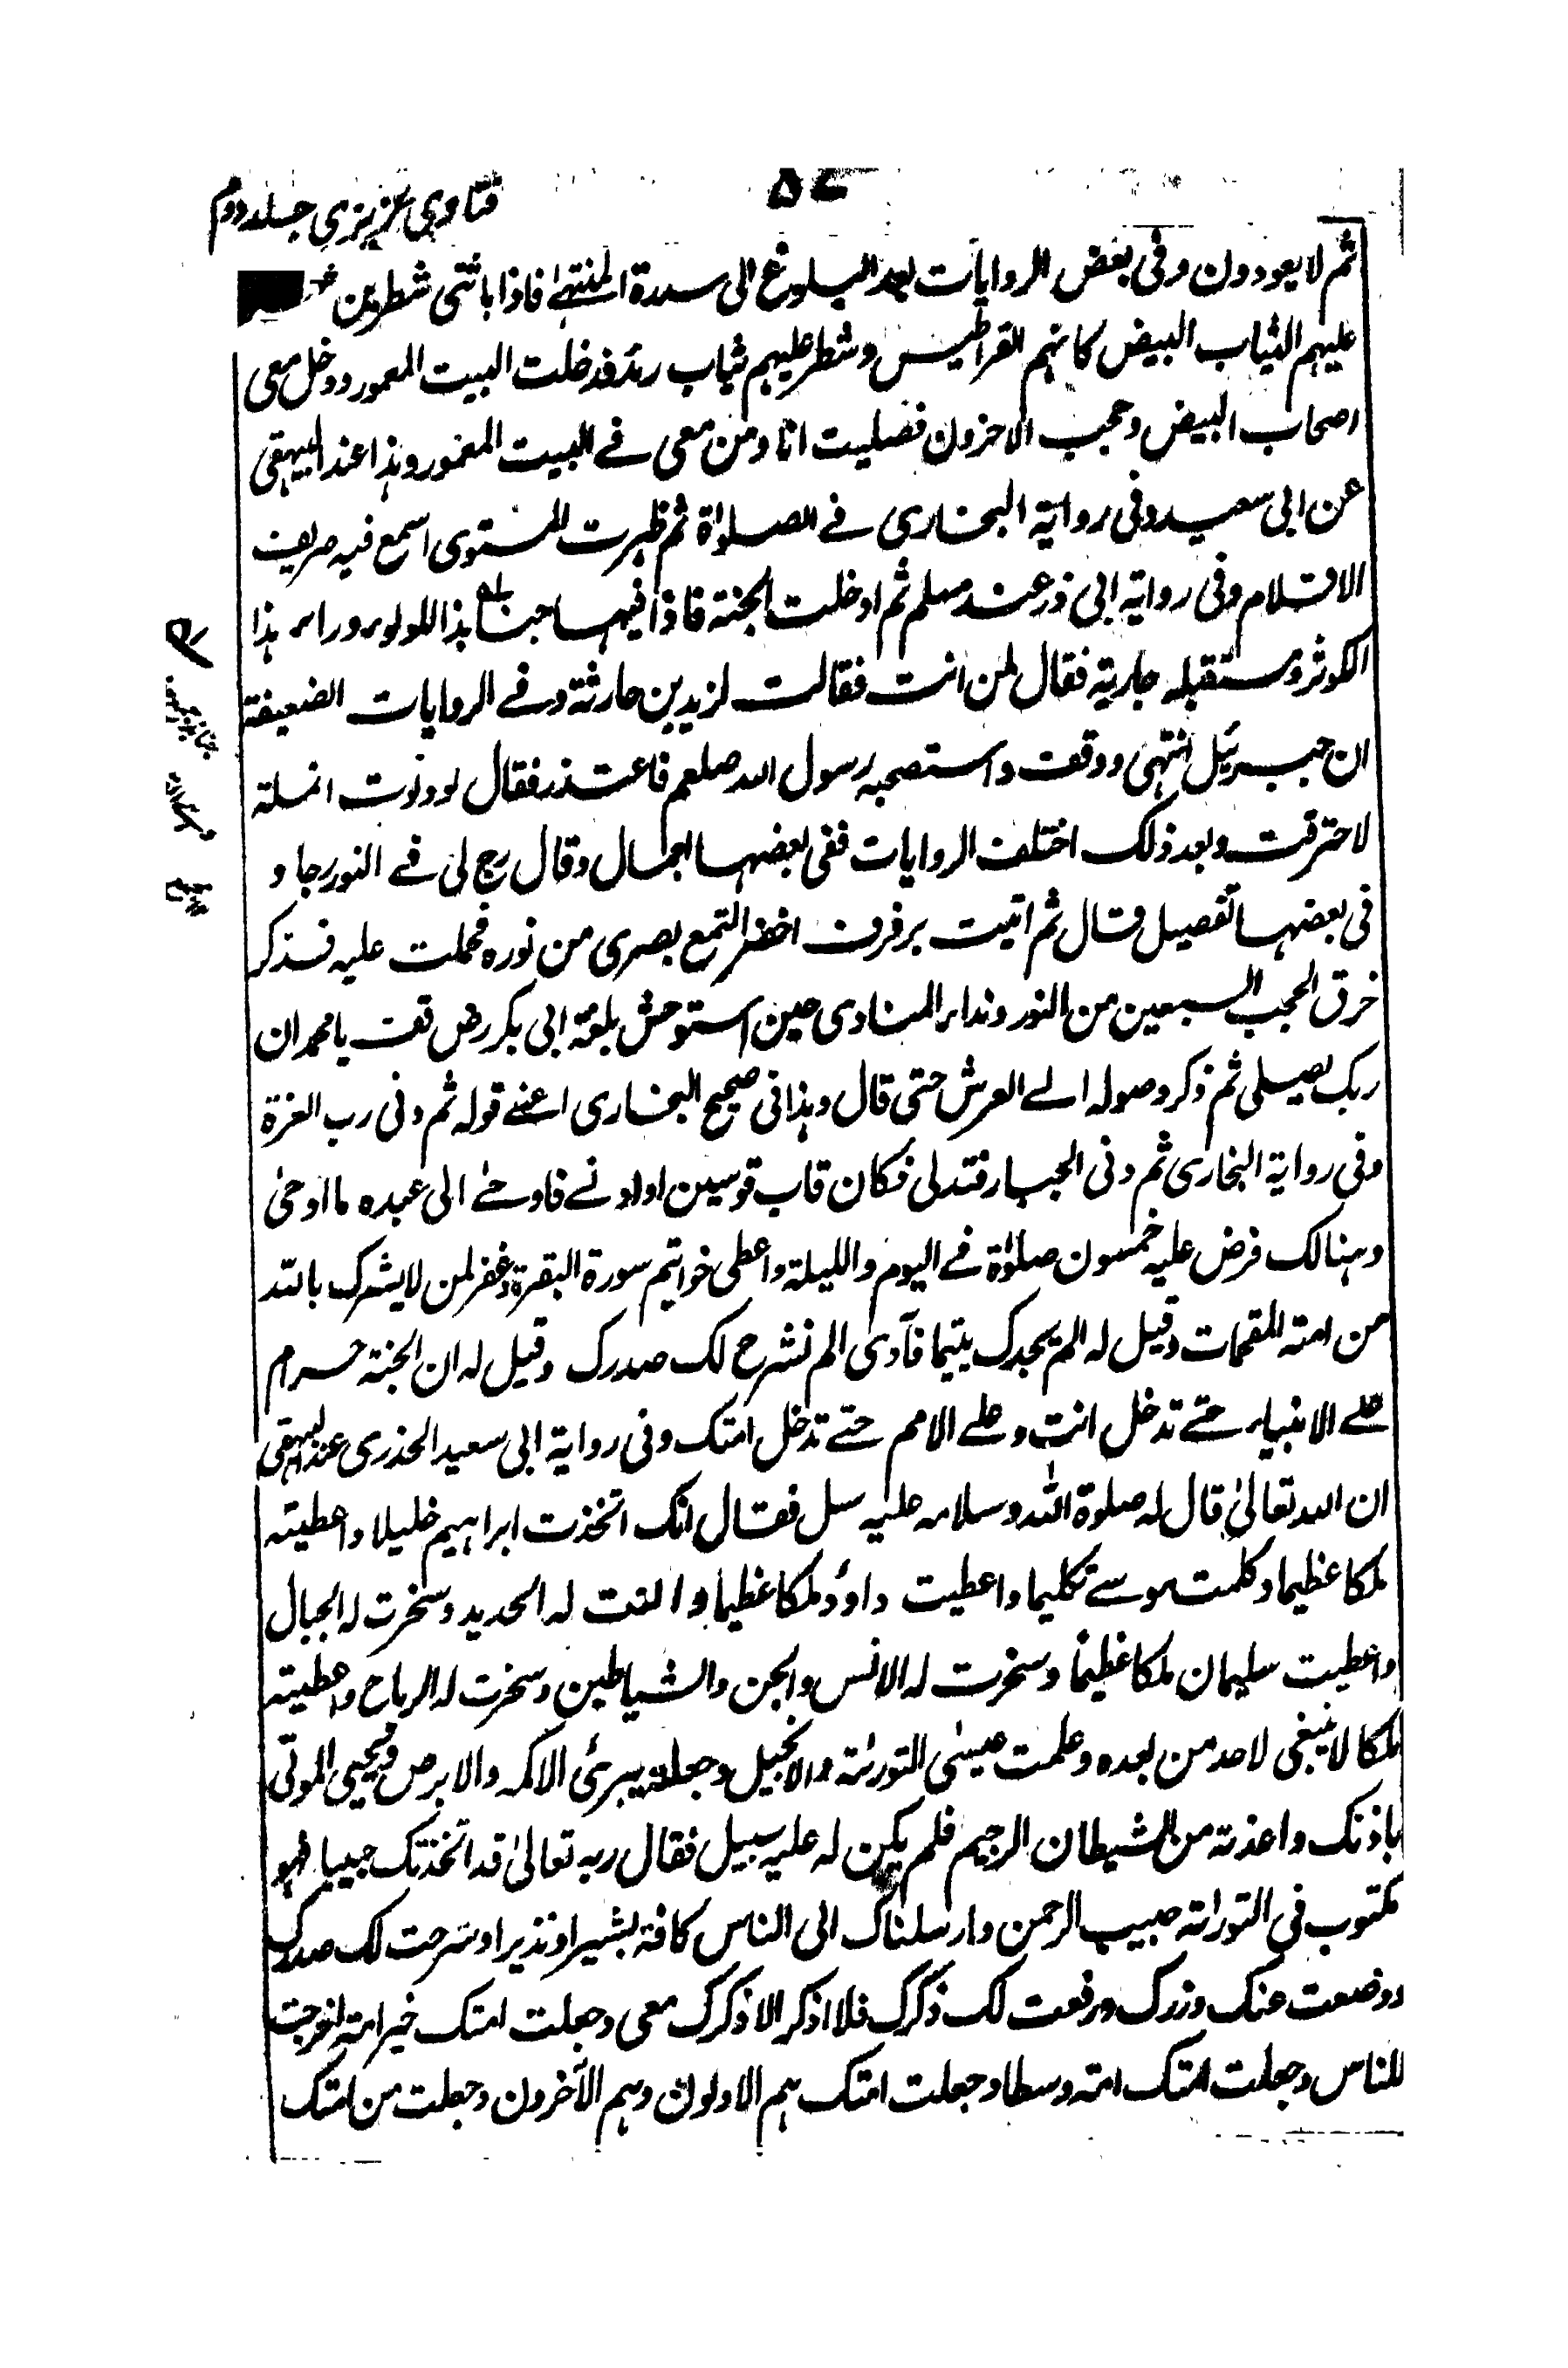 ۵۷
فتاوی عزیزی جلد دوم
ثم لا یعودون وفی بعض الروایات بعد البلوغ الی سدرة المنتهیٰ فاذا بامتی شطرین شطر
علیہم الثیاب البیض کانہم القراطیس وشطر علیہم ثیاب رمد فدخلت البیت المعمور ودخل معی
اصحاب البیض وحجب الاخرون فصلیت انا ومن معی فے البیت المعمور وہذا عند البیہقی
عن ابی سعید وفی روایة البخاری فے الصلواة ثم ظہرت لمستوی اسمع فیہ صریف
الاقلام وفی روایة ابی ذر عند مسلم ثم ادخلت الجنة فاذا فیہا جنابذ اللولوء وراء ہذا
الکوثر ومستقبلہ جاریة فقال لمن انت فقالت لزید بن حارثة وفے الروایات الضعیفة
ان جبرئیل انتہی ووقف واستصحبہ رسول اللہ صلعم فاعتذر فقال لو دنوت انملة
لاحترقت وبعد ذلک اختلف الروایات ففی بعضہا اجمال وقال زج لی فے النور زجا و
فی بعضہا تفصیل وقال ثم اتیت برفرف اخضر التمع بصری من نورہ فحملت علیہ فذکر
خرق الحجب السبعین من النور ونداء المنادی حین استوحش بلغة ابی بکر رض قف یا محمد ان
ربک یصلی ثم ذکر وصولہ الے العرش حتی قال وہذا فی صحیح البخاری اعنے قولہ ثم دنی رب العزة
وفی روایة البخاری ثم دنی الجبار فتدلی فکان قاب قوسین او ادنے فاوحے الی عبدہ ما اوحیٰ
وہنالک فرض علیہ خمسون صلوٰة فے الیوم واللیلة واعطی خواتیم سورة البقرة وغفر لمن لا یشرک باللہ
من امتہ المقحمات وقیل لہ الم یجدک یتیما فآدی الم نشرح لک صدرک وقیل لہ ان الجنة حرام
علے الانبیاء حتے تدخل انت وعلے الامم حتے تدخل امتک وفی روایة ابی سعید الخدری عند البیہقی
ان اللہ تعالیٰ قال لہ صلوة اللہ وسلامہ علیہ سل فقال انک اتخذت ابراہیم خلیلا واعطیتہ
ملکا عظیما وکلمت موسے تکلیما واعطیت داؤد ملکا عظیما والنت لہ الحدید وسخرت لہ الجبال
واعطیت سلیمان ملکا عظیما وسخرت لہ الانس والجن والشیاطین وسخرت لہ الریاح واعطیتہ
ملکا لا ینبغی لاحد من بعدہ وعلمت عیسٰی التورٰتة والانجیل وجعلتہ یبرئ الاکمہ والابرص ویحیی الموتی
باذنک واعذتہ من الشیطان الرجیم فلم یکن لہ علیہ سبیل فقال ربہ تعالیٰ قد اتخذتک حبیبا فہو
مکتوب فی التوراتة حبیب الرحمن وارسلناک الی الناس کافة بشیرا ونذیرا وشرحت لک صدرک
ووضعت عنک وزرک ورفعت لک ذکرک فلا اذکر الا ذکرک معی وجعلت امتک خیر امة اخرجت
للناس وجعلت امتک امة وسطا وجعلت امتک ہم الاولون وہم الآخرون وجعلت من امتک